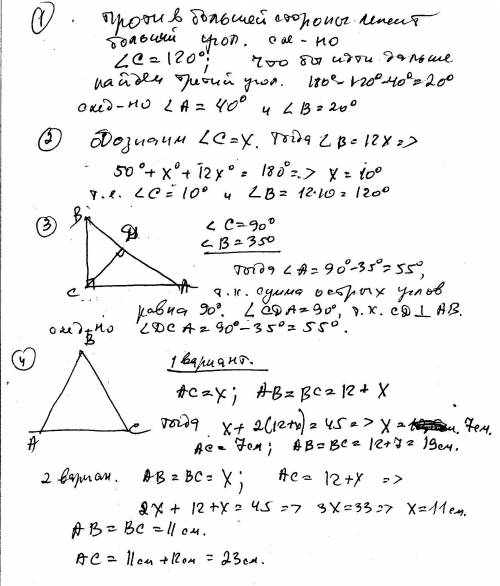 ① Против большей стороны лежит
больший угол. сле-но
∠C = 120°; что бы идти дальше
найдем третий угол. 180°-120°-40°=20°
след-но ∠A = 40° и ∠B = 20°
② Обозначим ∠C=X. Тогда ∠B=12X=>
50°+X°+12X°=180°=> X=10°
т.е. ∠C=10° и ∠B=12·10=120°
③ B D C A
∠C=90°
∠B=350
тогда ∠A=90°-35°=55°,
т.к. сумма острых углов
равна 90°. ∠CDA=90°, т.к. CD⊥AB.
след-но ∠DCA=90°-35°=55°.
④ B A C
1 вариант.
AC=X; AB=BC=12+X
тогда X+2(12+x)=45=> X= 7см.
AC=7см; AB=BC=12+7=19см.
2 вариан. AB=BC=X; AC=12+X =>
2X+12+X=45=> 3X=33=> X=11см.
AB=BC=11см.
AC=11см+12см=23см.